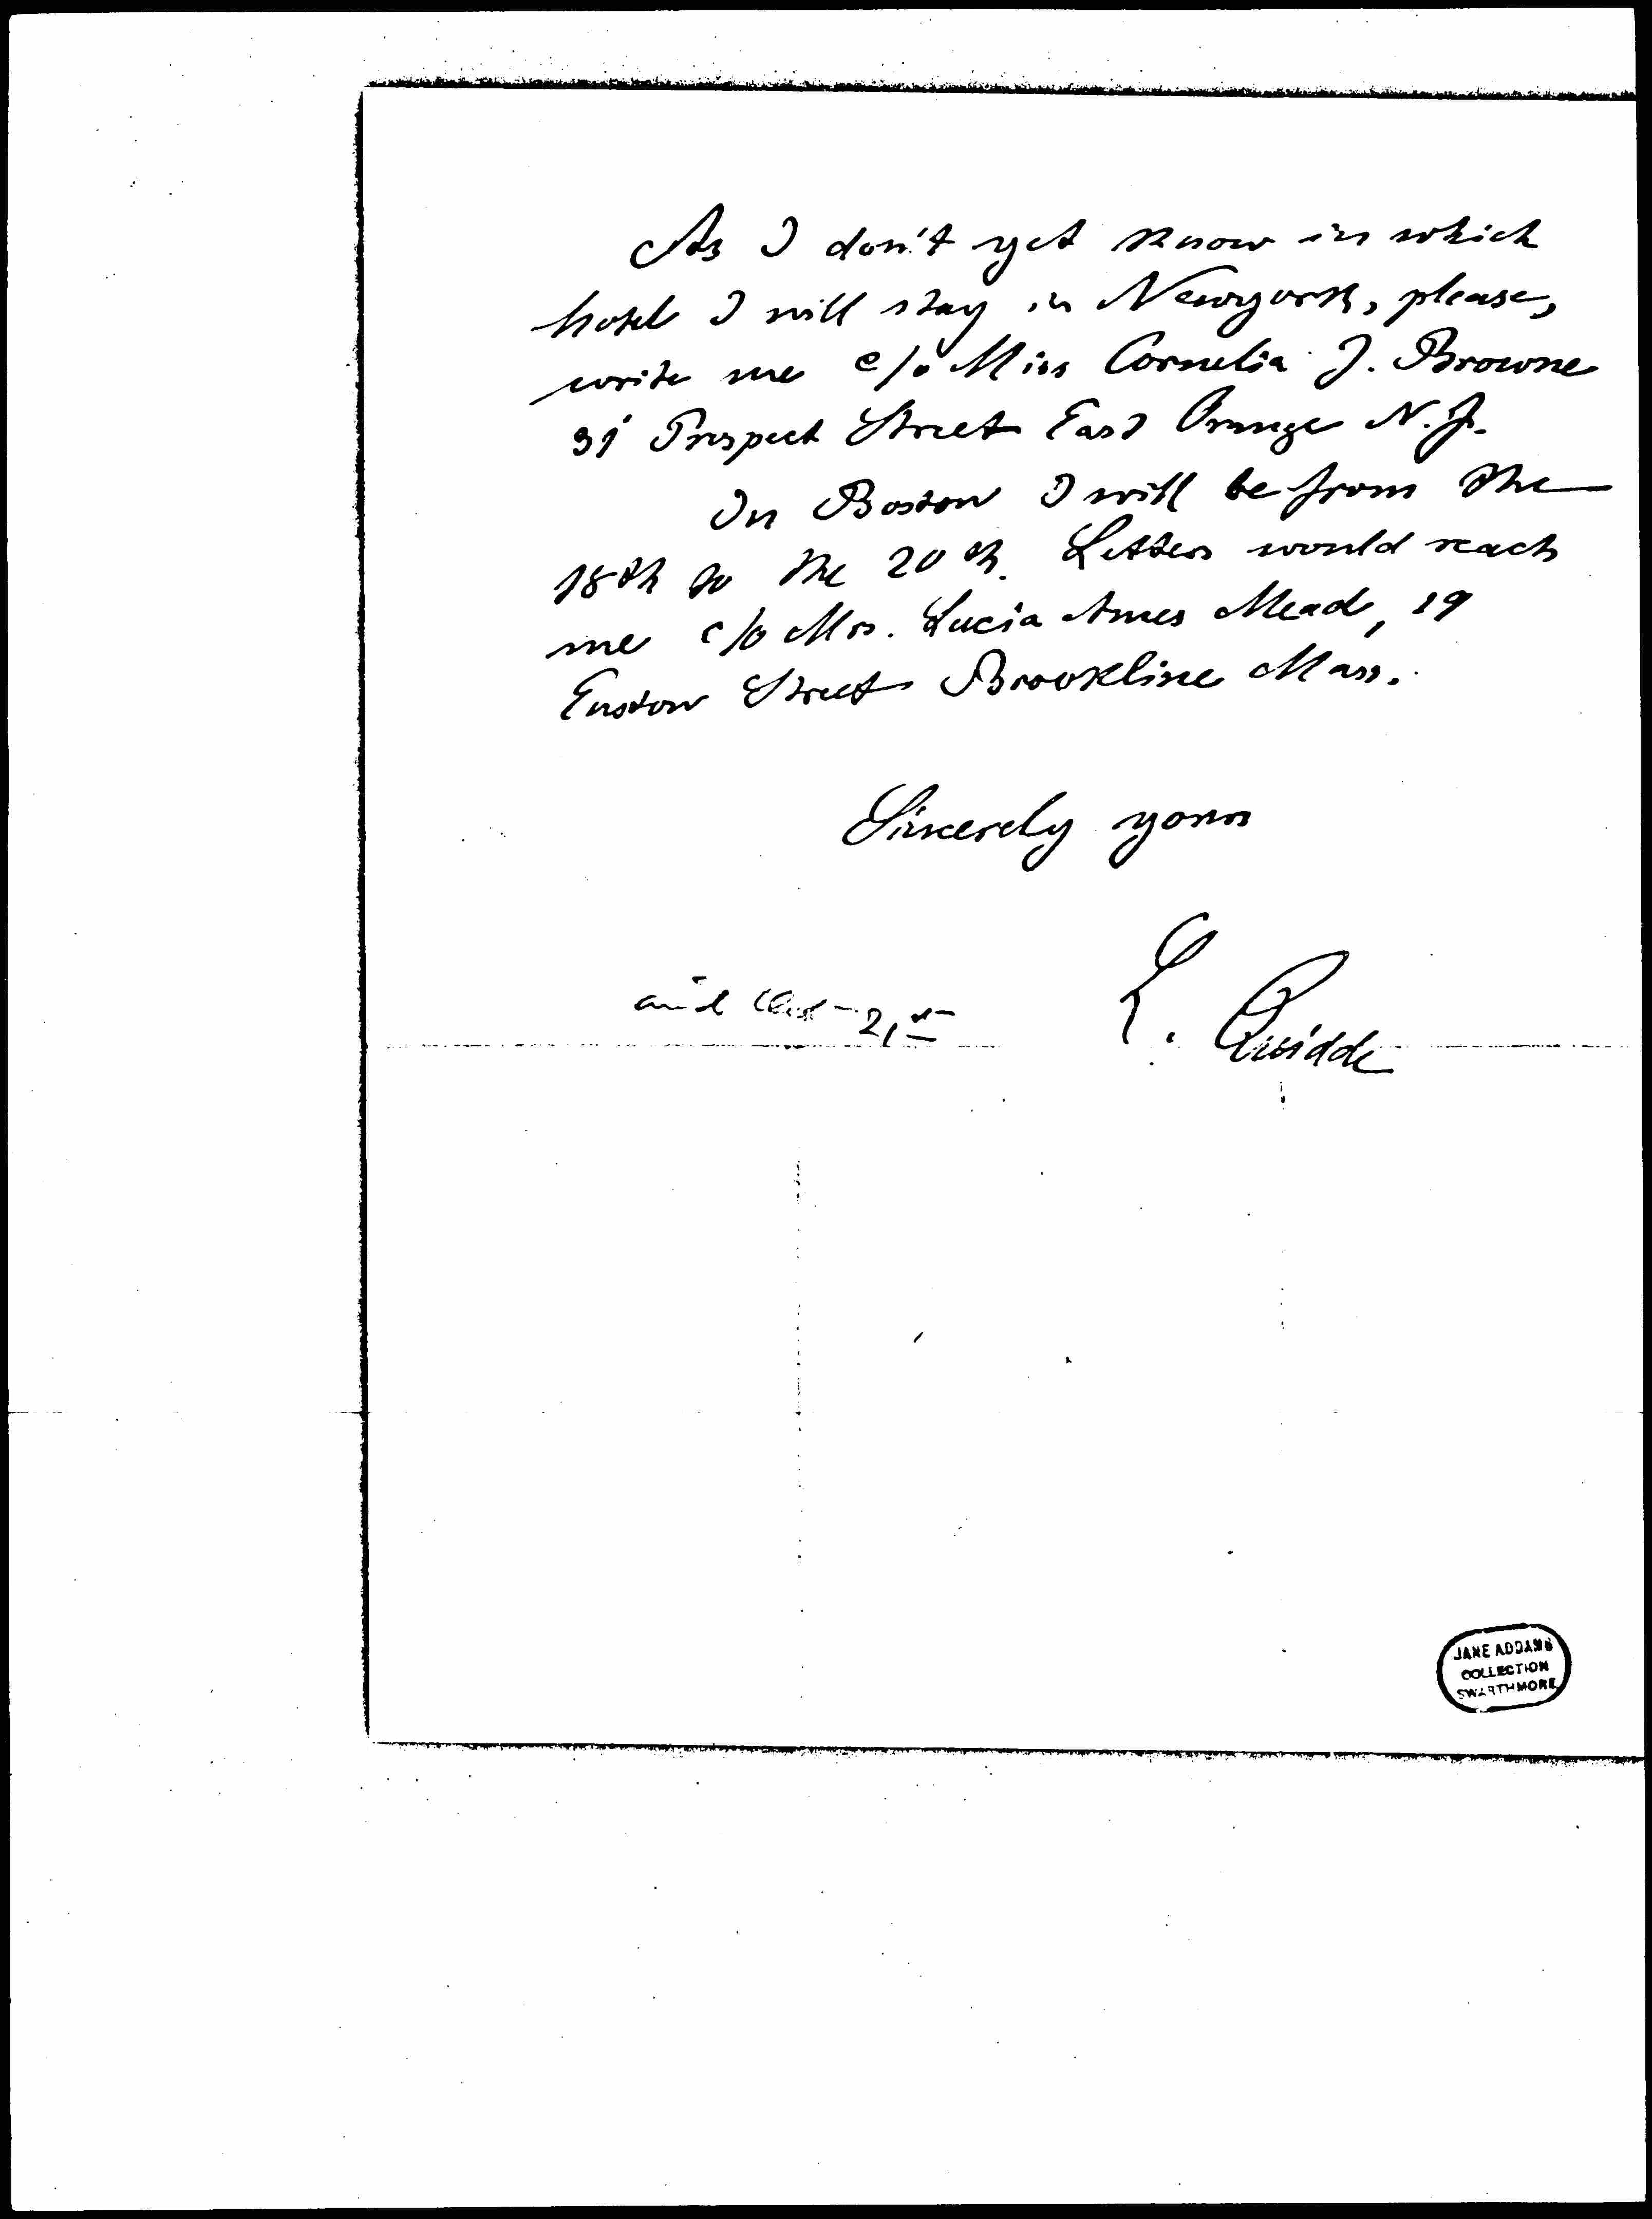 As I don't yet know in which
hotel I will stay in Newyork, please,
write me c/o Miss Cornelia J. Browne
31 Prospect Street East Orange N.J.
In Boston I will be from the
18th to the 20th. Letters would reach
me c/o Mrs. Lucia Ames Mead, 19
Euston Street Brookline Mass.
Sincerely yours
L. Quidde
JANE ADDAMS
COLLECTION
SWARTHMORE